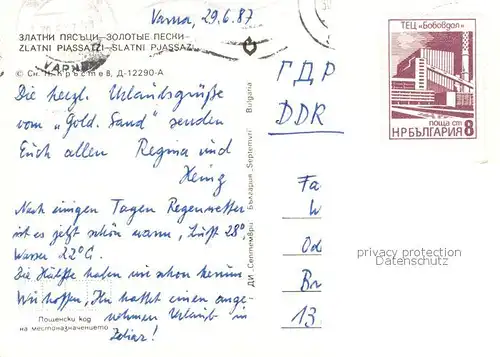 Varna, 29.6.87
ЗЛАТНИ ПЯСЪЦИ–ЗОЛОТЫЕ ПЕСКИ–
ZLATNI PIASSATZI–SLATNI PJASSAZI
© Сн. Н. Кръстев, Д-12290-А
Die herzl. Urlaubsgrüße
vom „Gold. Sand" senden
Euch allen Regina und
Heinz
Nach einigen Tagen Regenwetter
ist es jetzt schön warm, Luft 28°
Wasser 22°C.
Die Hälfte haben wir schon herum
Wir hoffen, Ihr hattet einen ange-
nehmen Urlaub in
Пощенски код
на местоназначението
ДИ „Септември" България „Septemvri" Bulgaria
ГДР
DDR
Fa
W
Od
Br
13
ТЕЦ „Бобовдол"
поща ст
НР БЪЛГАРИЯ 8
privacy protection
Datenschutz